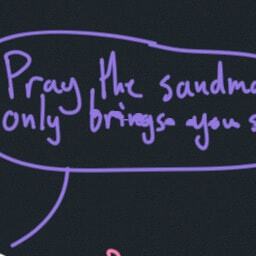 Pray the sandma
only brings you s